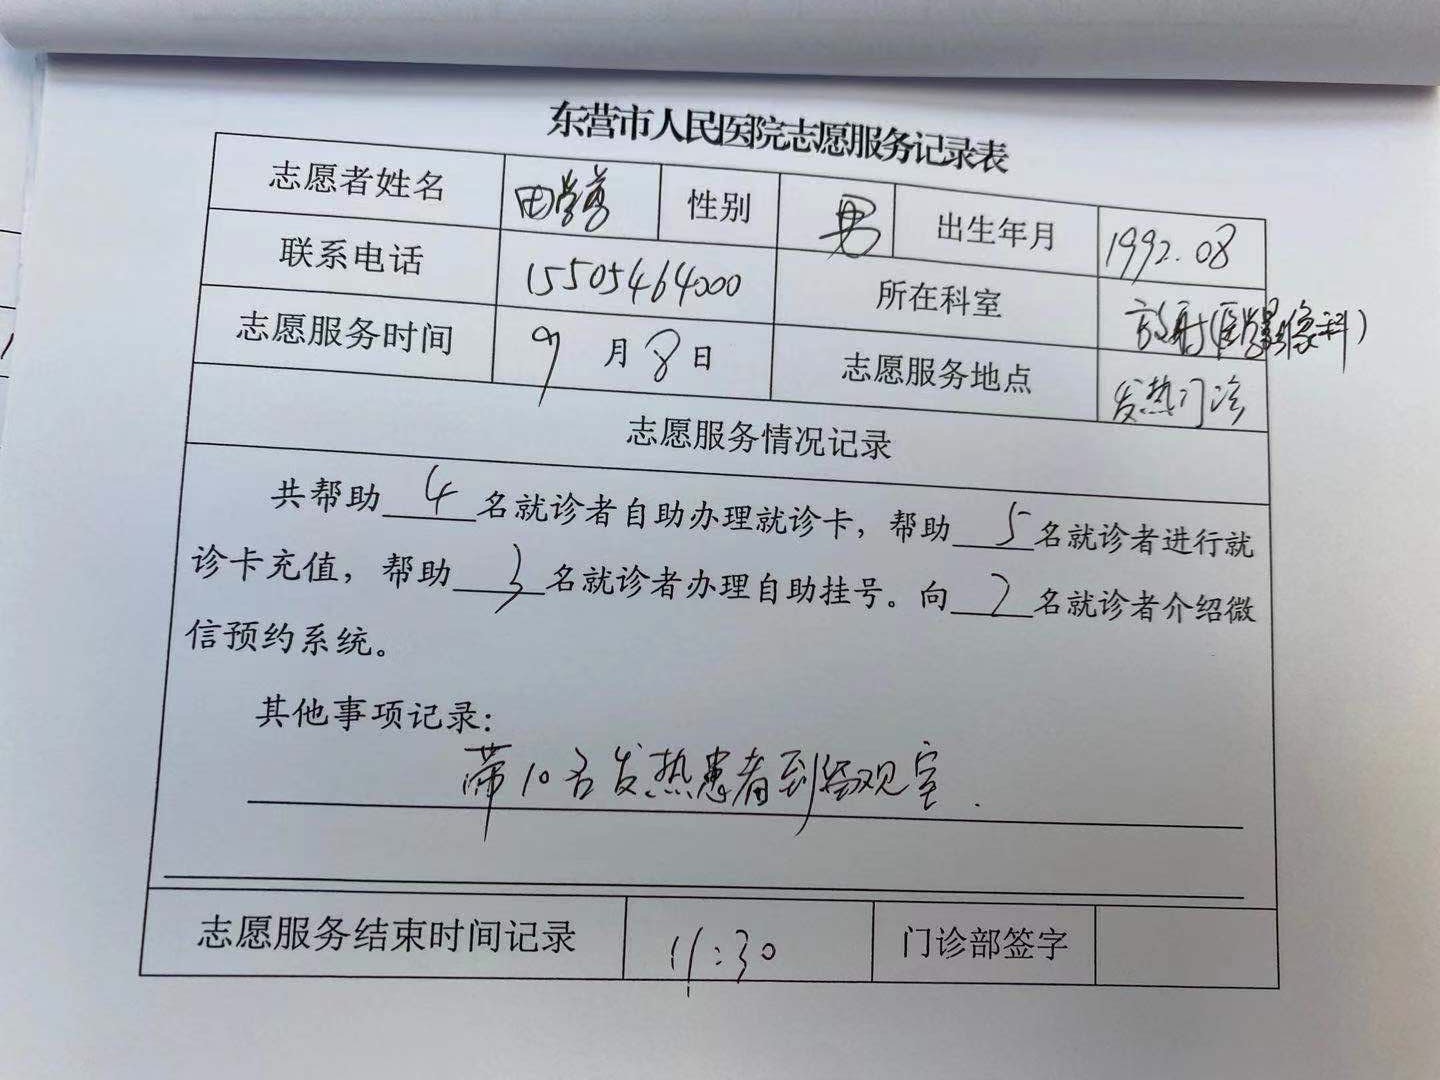 东营市人民医院志愿服务记录表
志愿者姓名 田学 性别 男 出生年月 1992.08
联系电话 15505464000 所在科室 放射(医学影像科)
志愿服务时间 9月8日 志愿服务地点 发热门诊
志愿服务情况记录
共帮助4名就诊者自助办理就诊卡，帮助5名就诊者进行就
诊卡充值，帮助3名就诊者办理自助挂号。向2名就诊者介绍微
信预约系统。
其他事项记录：
带10名发热患者到留观室.
志愿服务结束时间记录 11:30 门诊部签字